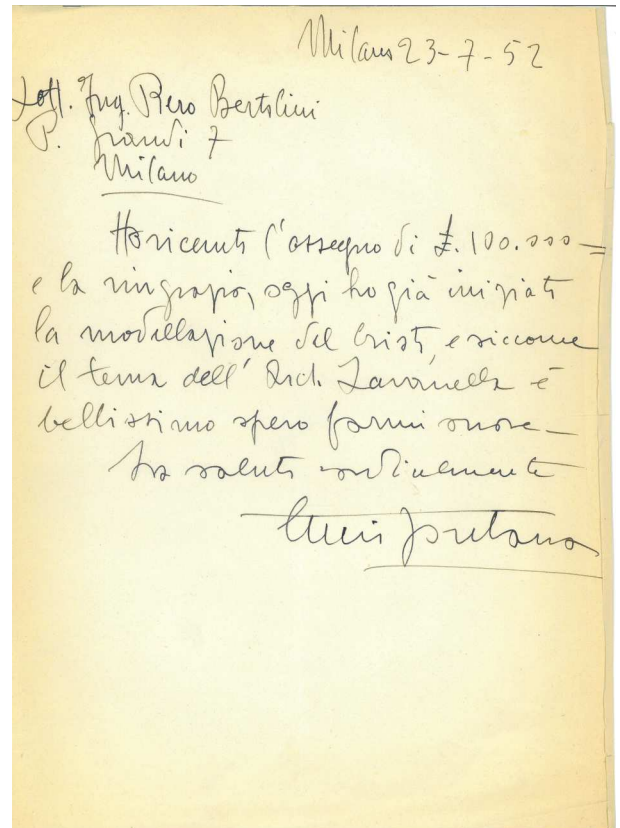 Milano 23-7-52
Dott. Ing. Piero Bertolini
P. Grandi 7
Milano
Ho ricevuto l'assegno di £.100.000=
e la ringrazio, oggi ho già iniziato
la modellazione del Cristo, e siccome
il tema dell'Arch. Zavanella è
bellissimo spero farmi onore—
La saluto cordialmente
Lucio Fontana